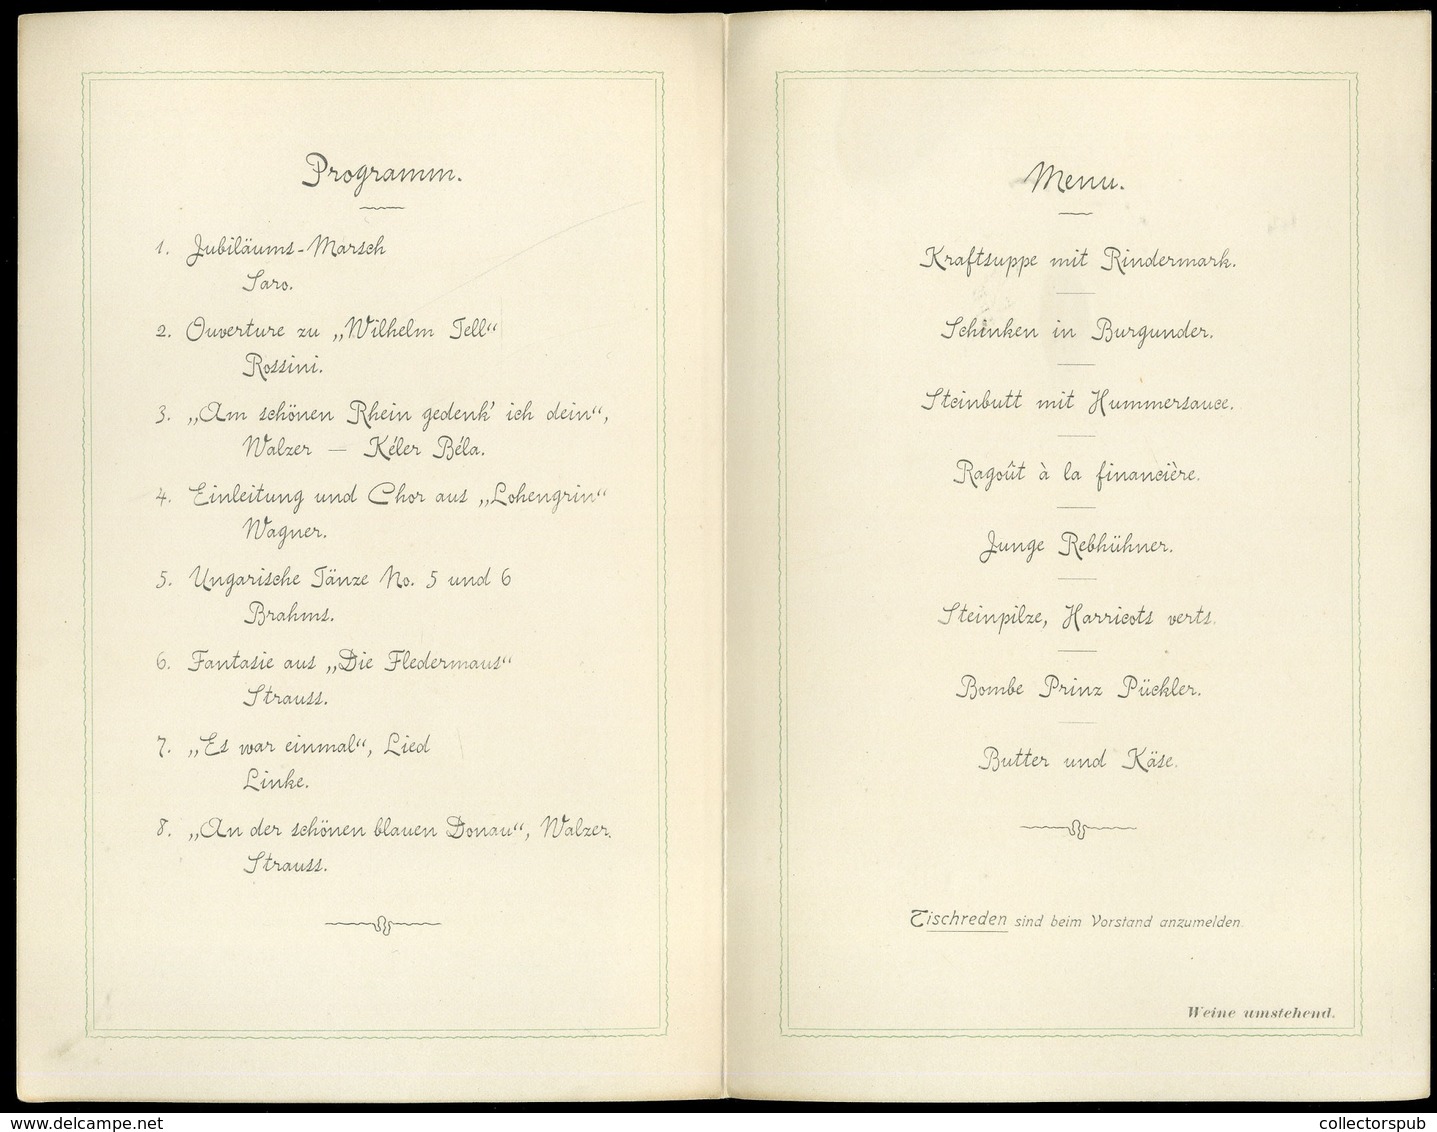 Programm.
1. Jubiläums-Marsch
Saro.
2. Ouverture zu „Wilhelm Tell“
Rossini.
3. „Am schönen Rhein gedenk' ich dein“,
Walzer — Kéler Béla.
4. Einleitung und Chor aus „Lohengrin“
Wagner.
5. Ungarische Tänze No. 5 und 6
Brahms.
6. Fantasie aus „Die Fledermaus“
Strauss.
7. „Es war einmal“, Lied
Linke.
8. „An der schönen blauen Donau“, Walzer.
Strauss.
Menu.
Kraftsuppe mit Rindermark.
Schinken in Burgunder.
Steinbutt mit Hummersauce.
Ragoût à la financière.
Junge Rebhühner.
Steinpilze, Harricots verts.
Bombe Prinz Pückler.
Butter und Käse.
Tischreden sind beim Vorstand anzumelden.
Weine umstehend.
www.delcampe.net
collectorspub